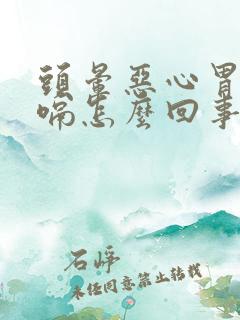 頭暈惡心胃
喘怎麼回事
石崢
未经同意禁止转载